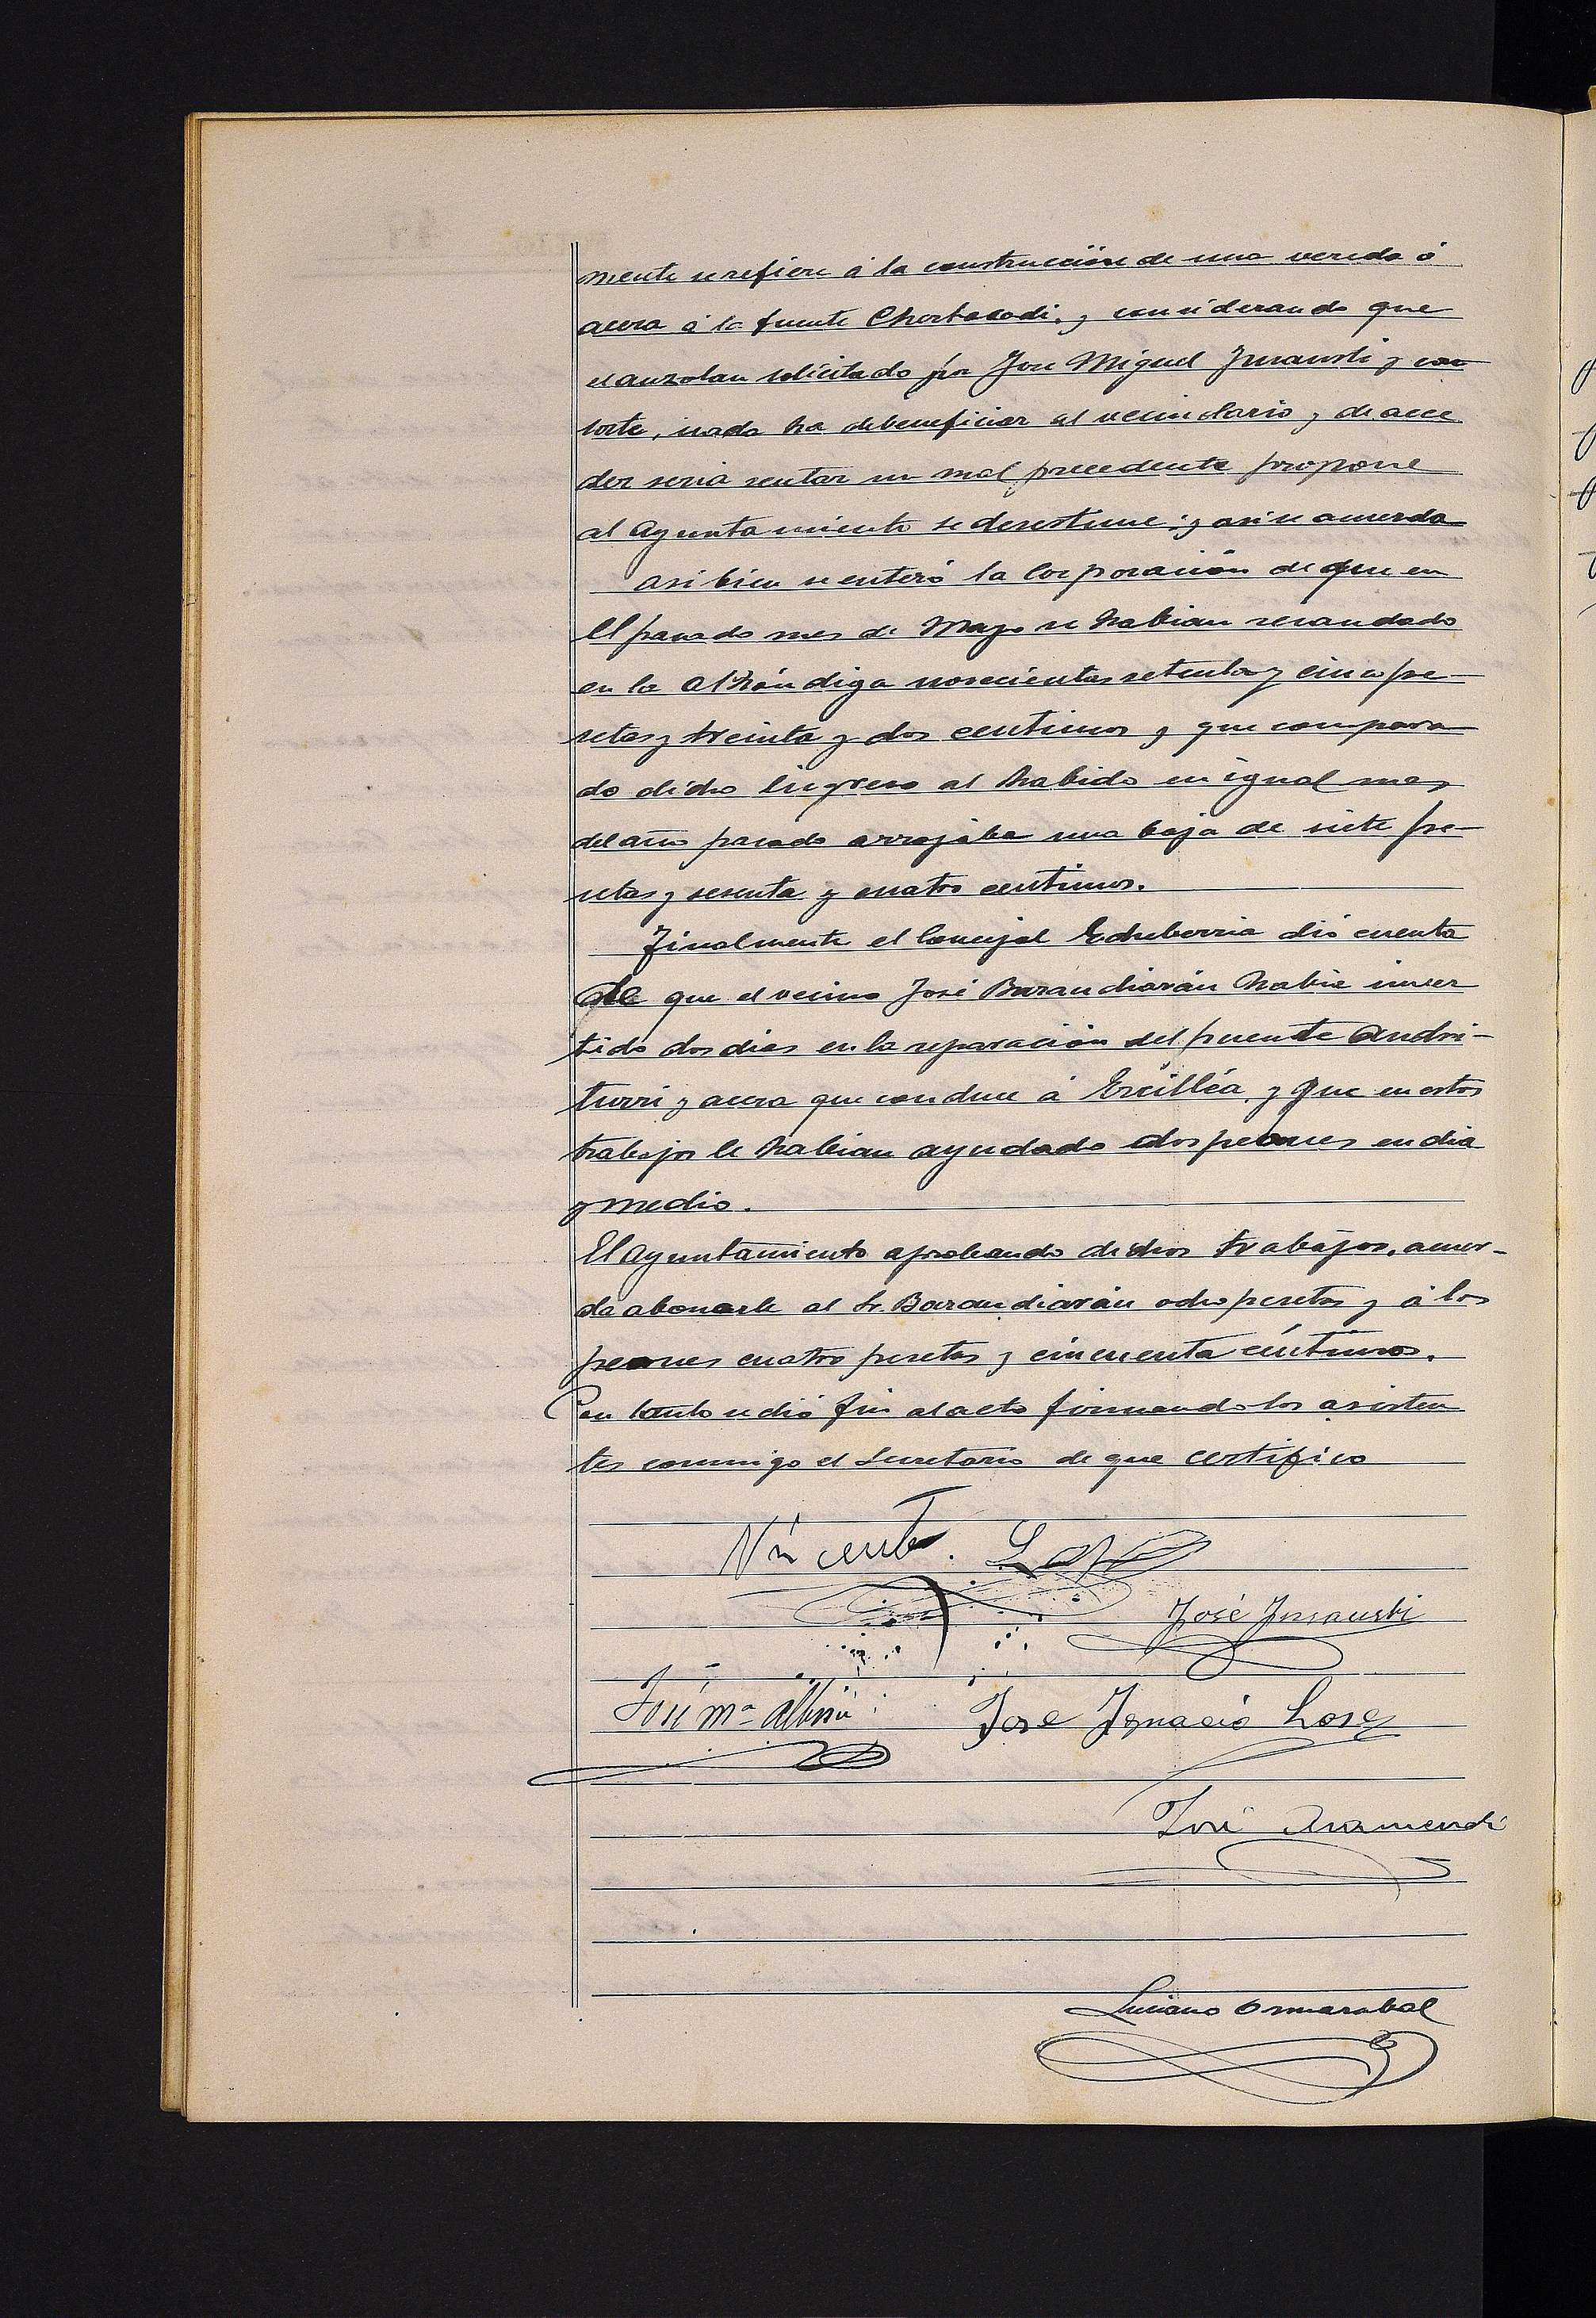 mente se refiere á la construcción de una vereda ó
acera á la fuente y considerando que
el auzolan solicitado por Jose Miguel Insausti y con
sorte, nada ha de beneficiar al vecindario y de acce
der seria sentar un mal precedente propone
al Ayuntamiento se desestime; y asi se acuerda
Asi bien se enteró la Corporación de que en
el pasado mes de Mayo se habian recaudado
en la Alhóndiga novecientas setenta y cinco pe-
setas y treinta y dos centimos y que compara
do dicho ingreso al habido en igual mes
del año pasado arrojaba una baja de siete pe-
setas y sesenta y cuatro centimos.
Finalmente el Concejal Echeberria dió cuenta
de que el vecino José Barandiarán habia inver
tido dos dias en la reparación del puente Andri-
turri y acera que conduce á y que en estos
trabajos le habian ayudado dos peones en dia
y medio.
El Ayuntamiento aprobando dichos trabajos, acuer-
da abonarle al Sr. Barandiarán ocho pesetas y á los
peones cuatro pesetas y cincuenta céntimos.
Con tanto se dió fin al acto firmando los asisten
tes conmigo el Secretario de que certifico
Vicente
José Insausti
José Mª Albisu
Jose Ignacio Lasa
José Aramendi
Luciano Ormazabal